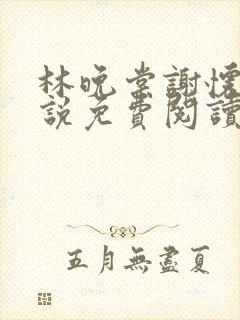 林晚棠謝懷
說免費閱讀
五月無盡夏